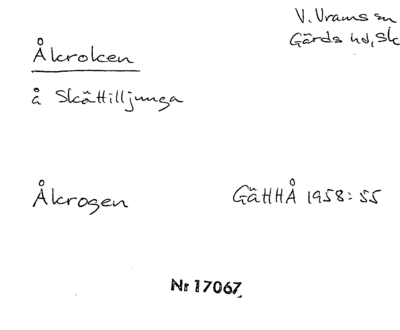 V. Vrams sn
Gärds hd, Sk
Åkroken
å Skättilljunga
Åkrogen
GäHHÅ 1958: 55
Nr 17067